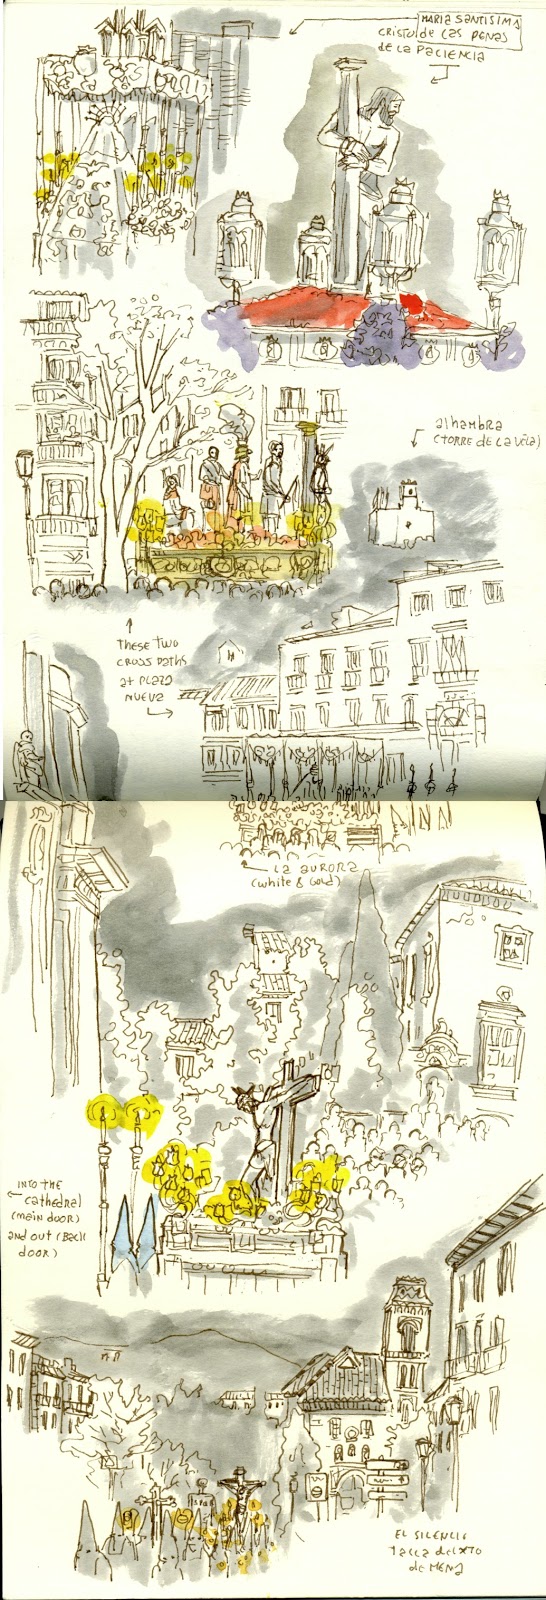 MARIA SANTISIMA
CRISTO de LAS PENAS
DE LA PACIENCIA
alhambra
(TORRE DE LA VELA)
THESE TWO
CROSS PATHS
at PLAZA
NUEVA
LA AURORA
(white & GOLD)
INTO THE
cathedral
(main DOOR)
and out (BACK
DOOR)
EL SILENCIO
de MENA